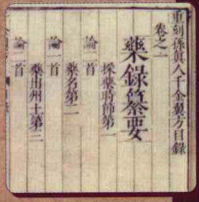 重刻孫真人千金翼方目錄
卷之一
藥錄纂要
採藥時節第一
論一首
藥名第二
論一首
藥出州土第三
論一首